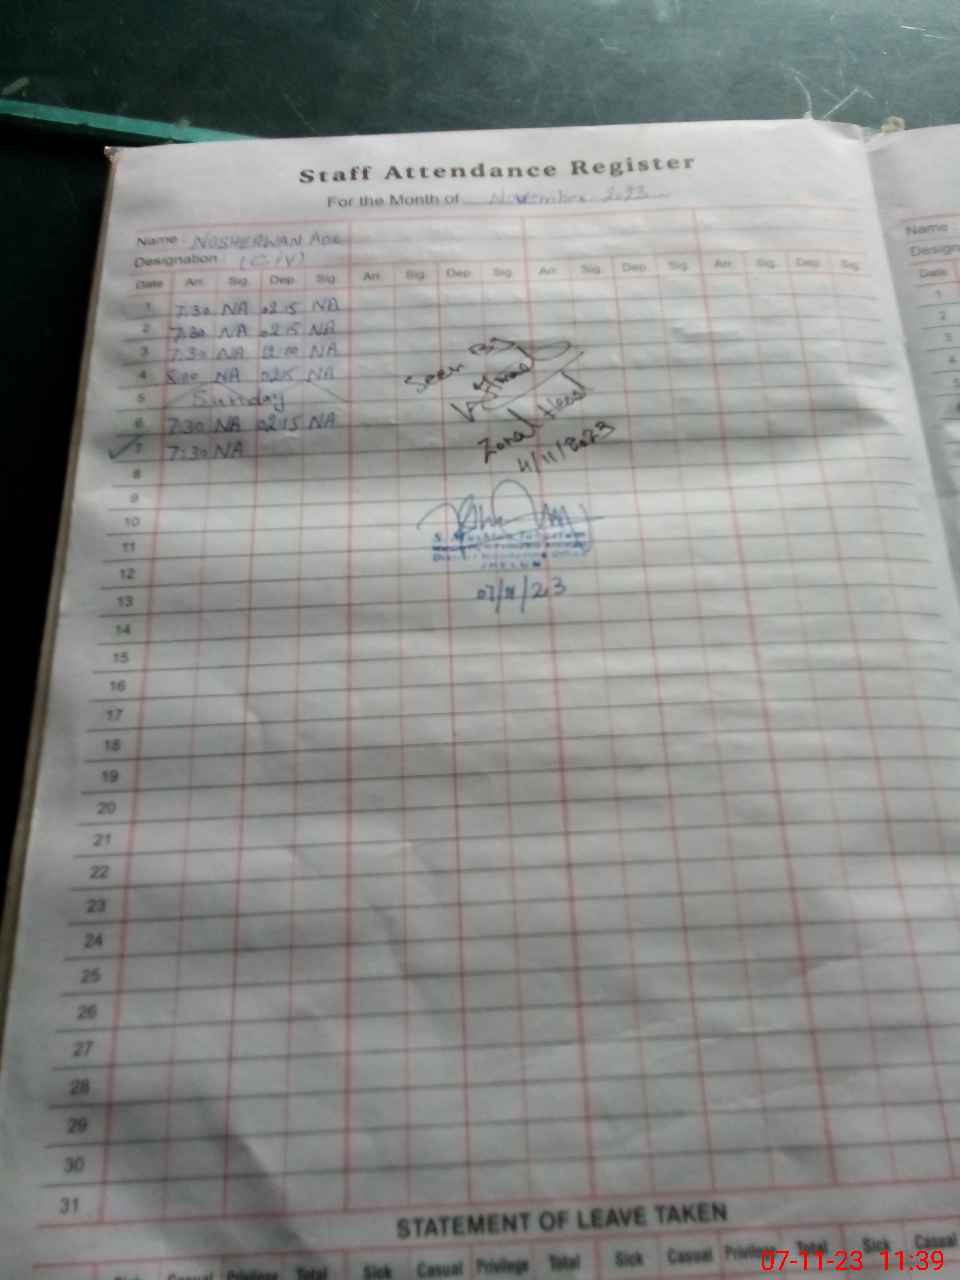 Staff Attendance Register
For the Month of November 2023
Name NOSHERWAN
Name
Designation (C.IV)
Date Arr. Sig. Dep. Sig. Arr. Sig. Dep. Sig. Arr. Sig. Dep. Sig. Arr. Sig. Dep. Sig.
Date
1 7.30 NA 02.15 NA
1
2 7.30 NA 02.15 NA
2
3 7.30 NA 12.00 NA
3
4 8.00 NA 02.15 NA
4
5 Sunday
5
6 7.30 NA 02.15 NA
7 7:30 NA
Seen By
Zonal Head
4/11/2023
8
9
10
11
JHELUM
12
07/11/23
13
14
15
16
17
18
19
20
21
22
23
24
25
26
27
28
29
30
31
STATEMENT OF LEAVE TAKEN
Sick Casual Privilege Total Sick Casual Privilege Total Sick Casual Privilege Total Sick Casual
07-11-23 11:39